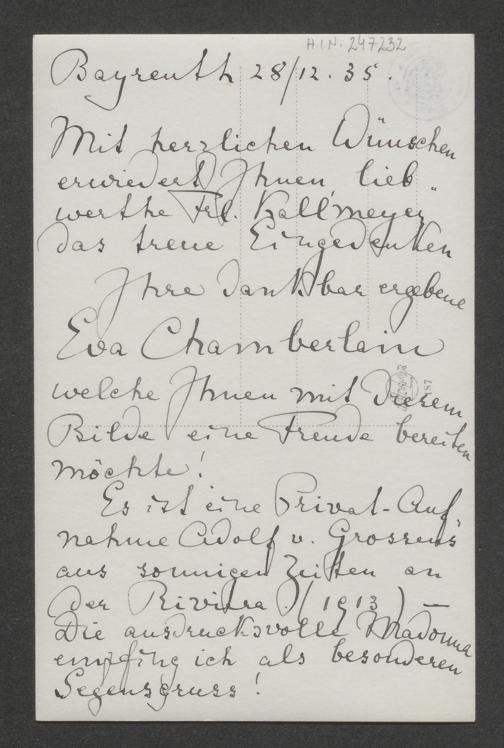 HIN. 247232
Bayreuth 28/12. 35.
Mit herzlichen Wünschen
erwiedert Ihnen, lieb„
werthe Frl. Kallmeyer
das treue Eingedenken
Ihre dankbar ergebene
Eva Chamberlain
welche Ihnen mit diesem
Bilde eine Freude bereiten
möchte!
Es ist eine Privat-Auf„
nahme Adolf v. Gross'ens
aus sonnigen Zeiten an
der Riviera. (1913) —
Die ausdrucksvolle Madonna
empfing ich als besonderen
Segensgruss!